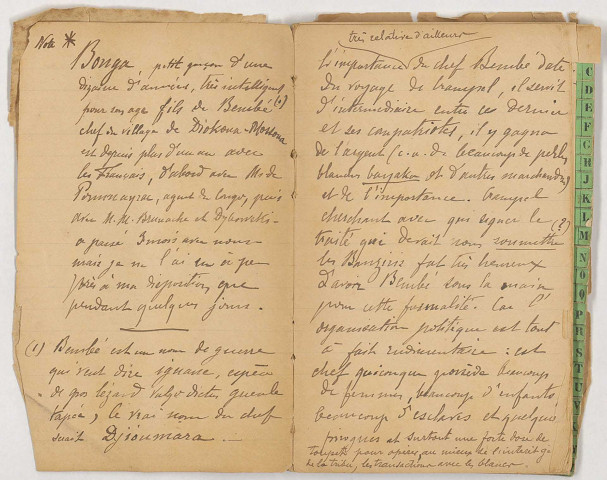 Note *
Bonga, petit garçon d'une
dizaine d'années, très intelligent
pour son âge fils de Bembé (1)
chef du village de Diokoua-Mossoua
est depuis plus d'un an avec
les Français, d'abord avec Mr de
Poumayrac, agent du Congo, puis
avec M.M. Brunache et Dybowski
a passé 3 mois avec nous
mais je ne l'ai eu à peu
près à ma disposition que
pendant quelques jours.
(1) Bembé est un nom de guerre
qui veut dire iguane, espèce
de gros lézard vulgo dictus gueule
tapée; le vrai nom du chef
serait Djioumara.
très relative d'ailleurs
L'importance du chef Bembé date
du voyage de Crampel, il servit
d'intermédiaire entre ce dernier
et ses compatriotes, il y gagna
de l'argent (c.a.d. beaucoup de perles
blanches bayaka et d'autres marchandises)
et de l'importance. Crampel
cherchant avec qui signer le (?)
traité qui devait nous soumettre
les Banziris fut très heureux
d'avoir Bembé sous la main
pour cette formalité. Car l'
organisation politique est tout
à fait rudimentaire : est
chef quiconque possède beaucoup
de femmes, beaucoup d'enfants,
beaucoup d'esclaves et quelques
pirogues et surtout une forte dose de
toupet pour opérer au mieux de l'intérêt g.
de la tribu, les transactions avec les blancs.
C
D
E
F
G
H
J
K
L
M
N
O
P
R
S
T
U
V